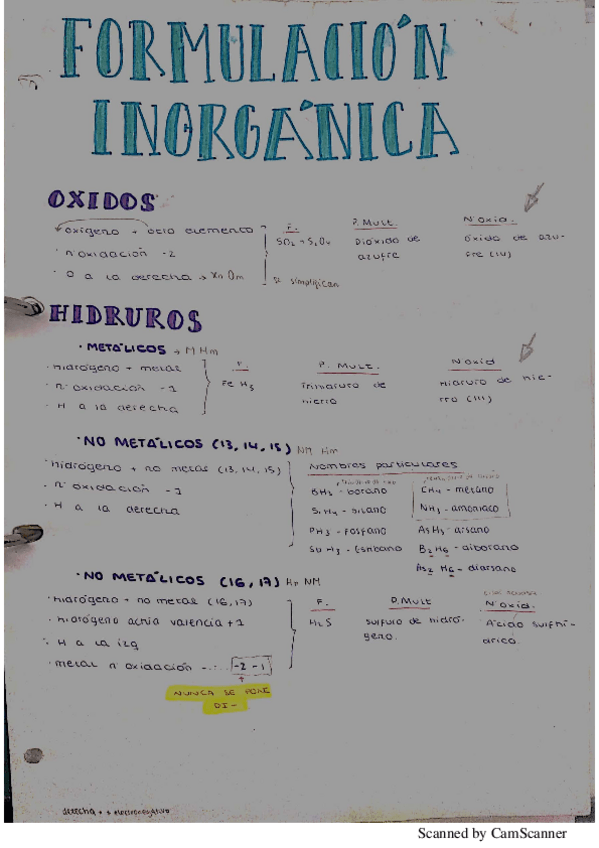 FORMULACIÓN
INORGÁNICA
OXIDOS
oxígeno + otro elemento
nº oxidación -2
O a la derecha → XnOm
F.
SO2 → S2O4
Se simplifican
P. Mult.
Dióxido de
azufre
Nº oxid.
óxido de azu-
fre (IV)
HIDRUROS
• METÁLICOS → M Hm
• hidrógeno + metal
• nº oxidación -1
• H a la derecha
F.
FeH3
P. Mult.
Trihidruro de
hierro
Nº oxid
Hidruro de hie-
rro (III)
• NO METÁLICOS (13, 14, 15) NM Hm
• hidrógeno + no metal (13, 14, 15)
• nº oxidación -1
• H a la derecha
Nombres particulares
BH3 - borano
SiH4 - silano
PH3 - fosfano
SbH3 - Estibano
CH4 - metano
NH3 - amoniaco
AsH3 - arsano
B2H6 - diborano
As2H6 - diarsano
• NO METÁLICOS (16, 17) Hn NM
• hidrógeno + no metal (16, 17)
• hidrógeno actúa valencia +1
• H a la izq
• metal nº oxidación -2 -1
NUNCA SE PONE
DI-
F.
H2S
P. Mult
sulfuro de hidró-
geno.
Nº oxid.
Ácido sulfhí-
drico.
derecha + electronegativo
Scanned by CamScanner